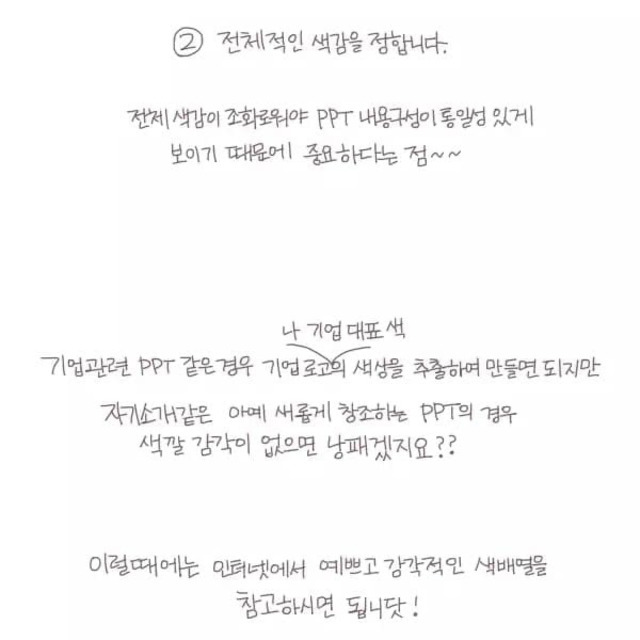 ② 전체적인 색감을 정합니다.
전체 색감이 조화로워야 PPT 내용구성이 통일성 있게
보이기 때문에 중요하다는 점~~
나 기업 대표 색
기업관련 PPT 같은 경우 기업로고의 색상을 추출하여 만들면 되지만
자기소개같은 아예 새롭게 창조하는 PPT의 경우
색깔 감각이 없으면 낭패겠지요??
이럴때에는 인터넷에서 예쁘고 감각적인 색배열을
참고하시면 됩니닷!